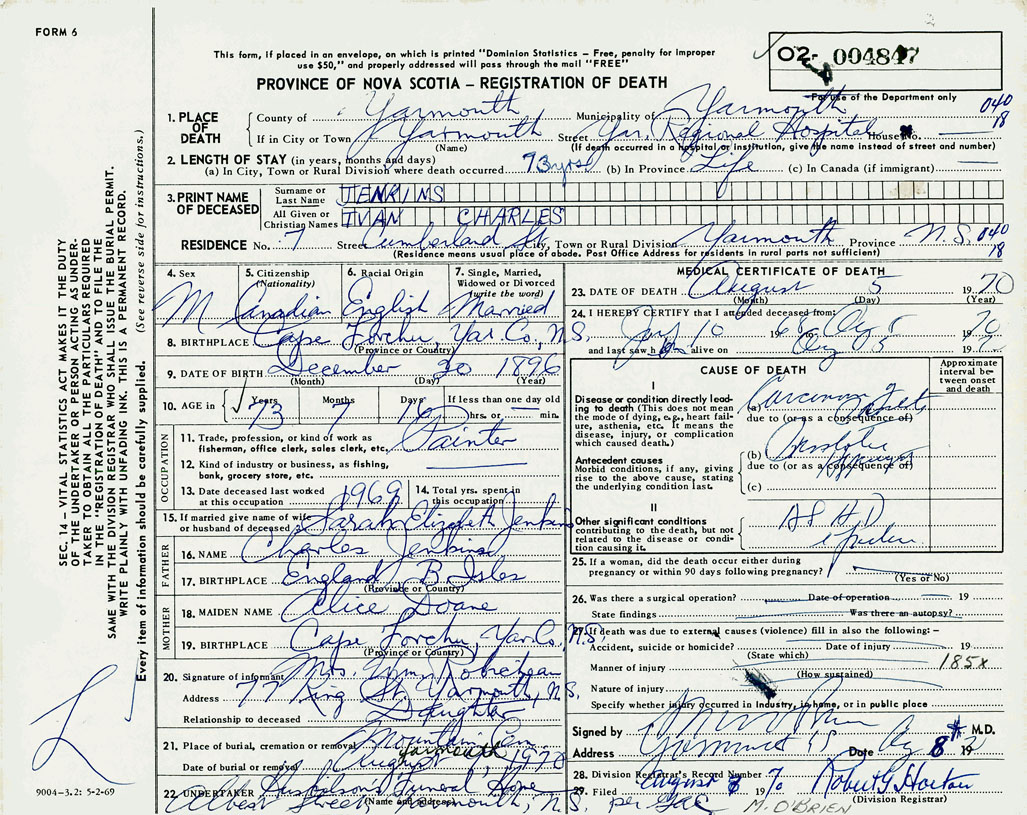 FORM 6
This form, if placed in an envelope, on which is printed "Dominion Statistics – Free, penalty for improper
use $50," and properly addressed will pass through the mail "FREE"
02- 004847
For use of the Department only
PROVINCE OF NOVA SCOTIA – REGISTRATION OF DEATH
1. PLACE OF DEATH
County of Yarmouth Municipality of Yarmouth 040
If in City or Town Yarmouth Street Yar. Regional Hospital House No. 18
(Name) (If death occurred in a hospital or institution, give the name instead of street and number)
2. LENGTH OF STAY (in years, months and days)
(a) In City, Town or Rural Division where death occurred 73 yrs (b) In Province Life (c) In Canada (if immigrant) —
3. PRINT NAME OF DECEASED
Surname or Last Name JENKINS
All Given or Christian Names IVAN CHARLES
RESIDENCE No. 7 Street Cumberland St City, Town or Rural Division Yarmouth Province N.S. 040
(Residence means usual place of abode. Post Office Address for residents in rural parts not sufficient) 18
4. Sex M
5. Citizenship (Nationality) Canadian
6. Racial Origin English
7. Single, Married, Widowed or Divorced (write the word) Married
8. BIRTHPLACE Cape Forchu, Yar. Co., N.S.
(Province or Country)
9. DATE OF BIRTH December 20 1896
(Month) (Day) (Year)
10. AGE in Years Months Days If less than one day old
73 7 16 hrs. or — min.
OCCUPATION
11. Trade, profession, or kind of work as
fisherman, office clerk, sales clerk, etc. Painter
12. Kind of industry or business, as fishing,
bank, grocery store, etc. —
13. Date deceased last worked
at this occupation 1969
14. Total yrs. spent in
this occupation
15. If married give name of wife
or husband of deceased Sarah Elizabeth Jenkins
FATHER
16. NAME Charles Jenkins
17. BIRTHPLACE England B. Isles
(Province or Country)
MOTHER
18. MAIDEN NAME Alice Doane
19. BIRTHPLACE Cape Forchu, Yar. Co., N.S.
(Province or Country)
20. Signature of informant Mrs.
Address 77 King St. Yarmouth, N.S.
Relationship to deceased Daughter
21. Place of burial, cremation or removal Mountain
Yarmouth
Date of burial or removal August 1970
22. UNDERTAKER Funeral Home
(Name and address)
Albert Street, Yarmouth, N.S.
MEDICAL CERTIFICATE OF DEATH
23. DATE OF DEATH August 5 1970
(Month) (Day) (Year)
24. I HEREBY CERTIFY that I attended deceased from:
10 5 1970
and last saw h alive on 19
CAUSE OF DEATH
Approximate interval between onset and death
I
Disease or condition directly leading
to death (This does not mean
the mode of dying, e.g., heart failure,
asthenia, etc. It means the
disease, injury, or complication
which caused death.)
(a) Carcinoma
due to (or as a consequence of)
Antecedent causes
Morbid conditions, if any, giving
rise to the above cause, stating
the underlying condition last.
(b)
due to (or as a consequence of)
(c)
II
Other significant conditions
contributing to the death, but not
related to the disease or condition
causing it.
ASHD
25. If a woman, did the death occur either during
pregnancy or within 90 days following pregnancy?
(Yes or No)
26. Was there a surgical operation? Date of operation 19
State findings Was there an autopsy?
27. If death was due to external causes (violence) fill in also the following: –
Accident, suicide or homicide? Date of injury 19
(State which)
Manner of injury 185x
(How sustained)
Nature of injury
Specify whether injury occurred in industry, in home, or in public place
Signed by M.D.
Address Date 8 19
28. Division Registrar's Record Number
29. Filed August 1970 Robert G Horton
(Division Registrar)
per
M. O'BRIEN
SEC. 14 – VITAL STATISTICS ACT MAKES IT THE DUTY
OF THE UNDERTAKER OR PERSON ACTING AS UNDERTAKER
TO OBTAIN ALL THE PARTICULARS REQUIRED
IN THE "REGISTRATION OF DEATH" AND TO FILE THE
SAME WITH THE DIVISION REGISTRAR WHO SHALL ISSUE THE BURIAL PERMIT.
WRITE PLAINLY WITH UNFADING INK. THIS IS A PERMANENT RECORD.
Every item of information should be carefully supplied. (See reverse side for instructions.)
9004–3.2: 5-2-69